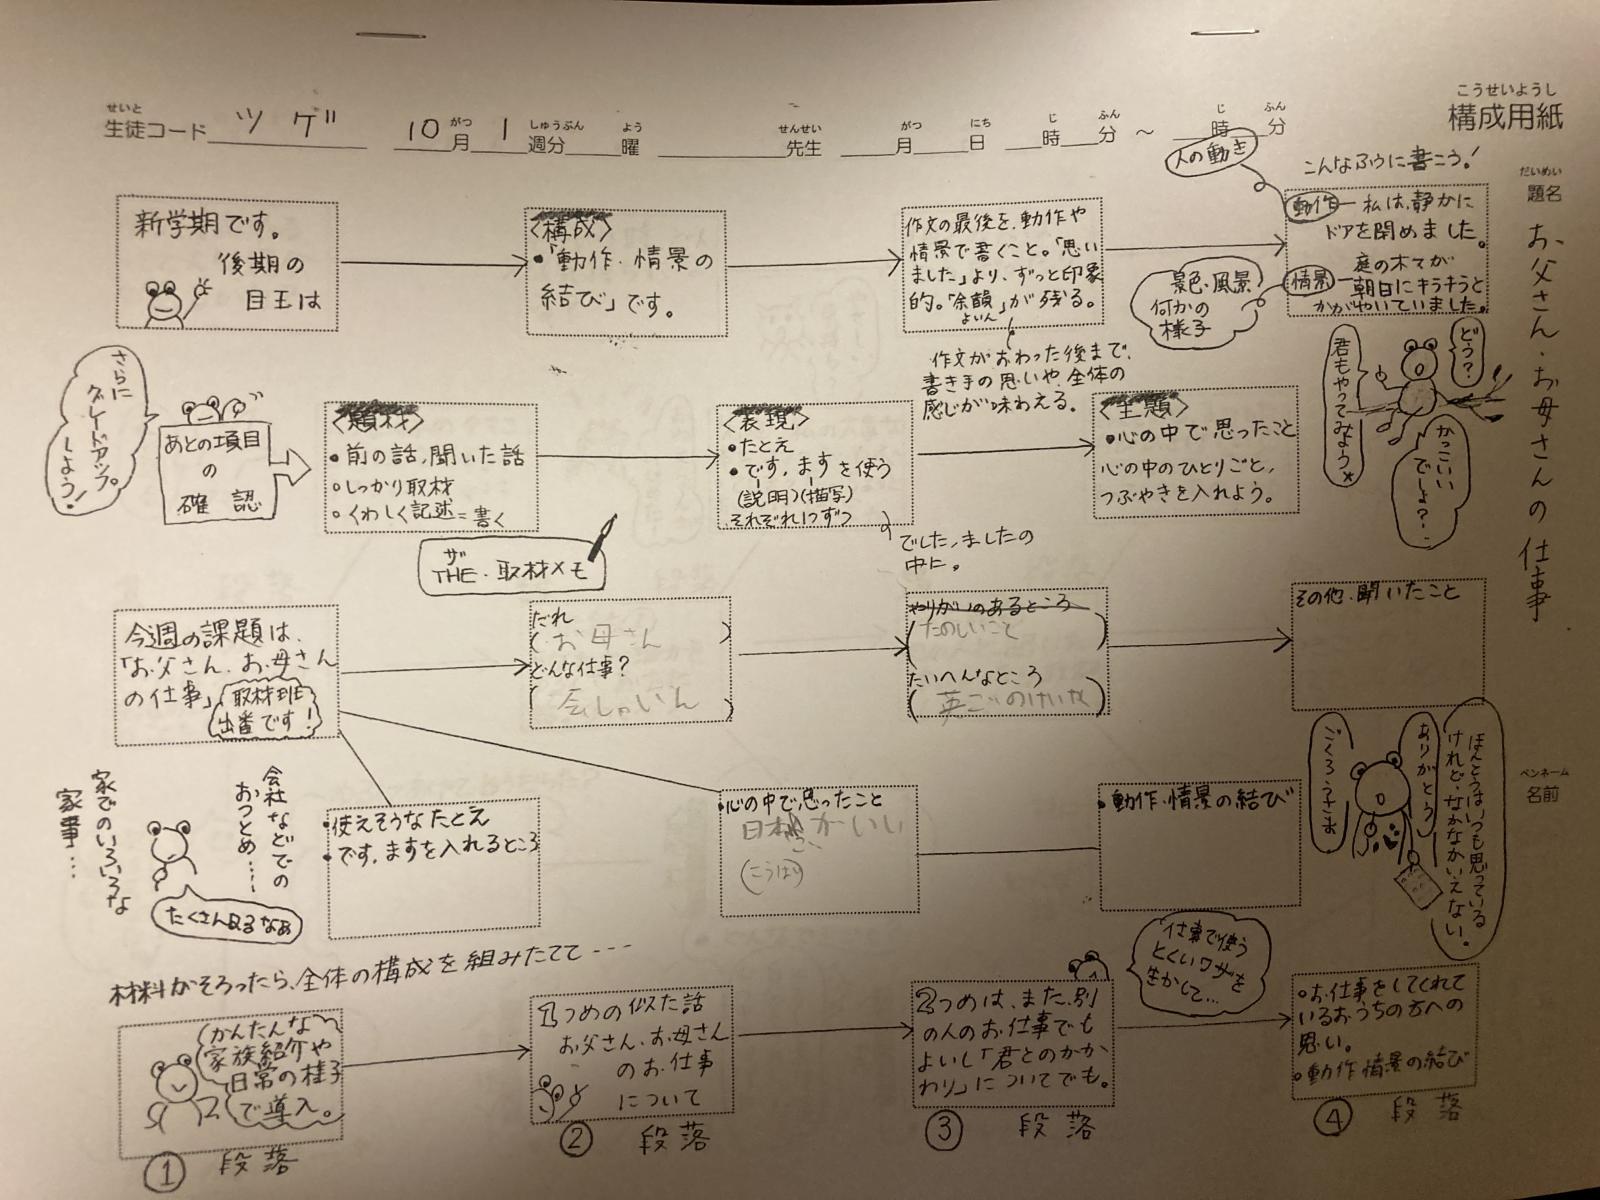 こうせいようし
構成用紙
せいと
生徒コード ツゲ
10月 1週分 曜
がつ しゅうぶん よう
せんせい
先生
がつ にち じ ふん じ ふん
月 日 時 分 ～ 時 分
だいめい
題名
お父さん・お母さんの仕事
ペンネーム
名前
新学期です。
後期の
目玉は
〈構成〉
・「動作・情景の
結び」です。
作文の最後を、動作や
情景で書くこと。「思い
ました」より、ずっと印象
的。「余韻」が残る。
よいん
作文がおわった後まで、
書き手の思いや、全体の
感じが味わえる。
人の動き
景色・風景
何かの
様子
こんなふうに書こう！
動作 ─ 私は、静かに
ドアを閉めました。
情景 ─ 庭の木々が
朝日にキラキラと
かがやいていました。
どう？
かっこいい
でしょ？
君もやってみよう
さらに
グレードアップ
しよう！
あとの項目
の
確認
〈題材〉
・前の話、聞いた話
○しっかり取材
○くわしく記述＝書く
ザ
THE・取材メモ
〈表現〉
・たとえ
・です、ますを使う
(説明)(描写)
それぞれ1つずつ
でした、ましたの
中に。
〈主題〉
・心の中で思ったこと
心の中のひとりごと、
つぶやきを入れよう。
今週の課題は、
「お父さん、お母さん
の仕事」
取材班
出番です！
だれ
(お母さん)
どんな仕事？
(会しゃいん)
やりがいのあるところ
(たのしいこと)
たいへんなところ
その他・聞いたこと
ほんとうはいつも思っている
けれど、なかなかいえない。
ありがとう
ごくろうさま
会社などでの
おつとめ……
家でのいろいろな
家事…
たくさんあるなあ
・使えそうなたとえ
・です、ますを入れるところ
・心の中で、思ったこと
・動作・情景の結び
材料がそろったら、全体の構成を組みたてて----
かんたんな
家族紹介や
日常の様子
で導入。
① 段落
1つめの似た話
お父さん、お母さん
のお仕事
について
② 段落
2つめは、また、別
の人のお仕事でも
よいし「君とのかか
わり」についてでも。
③ 段落
仕事で使う
とくいワザを
生かして…
○お仕事をしてくれて
いるおうちの方への
思い。
○動作・情景の結び
④ 段落